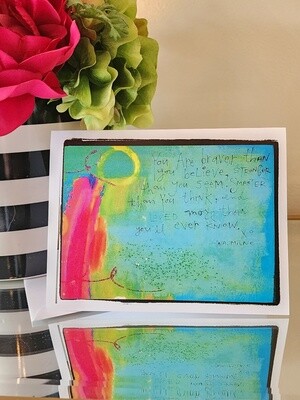 You ARE braver than
you believe, STRONGER
than you seem, SMARTER
than you think, and
more than
you'll ever know.